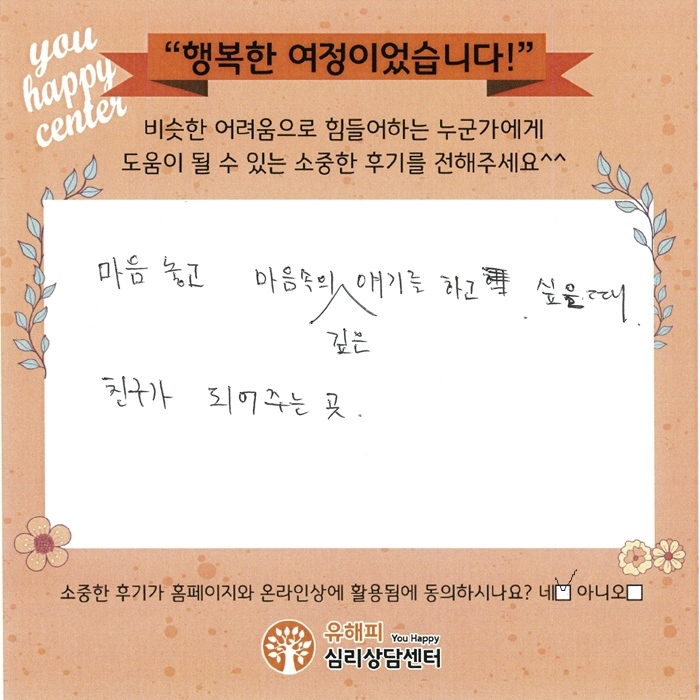 you
happy
center
“행복한 여정이었습니다!”
비슷한 어려움으로 힘들어하는 누군가에게
도움이 될 수 있는 소중한 후기를 전해주세요^^
마음 놓고 마음속의 깊은 얘기를 하고 싶을때.
친구가 되어주는 곳.
소중한 후기가 홈페이지와 온라인상에 활용됨에 동의하시나요? 네☑ 아니오□
유해피 You Happy
심리상담센터